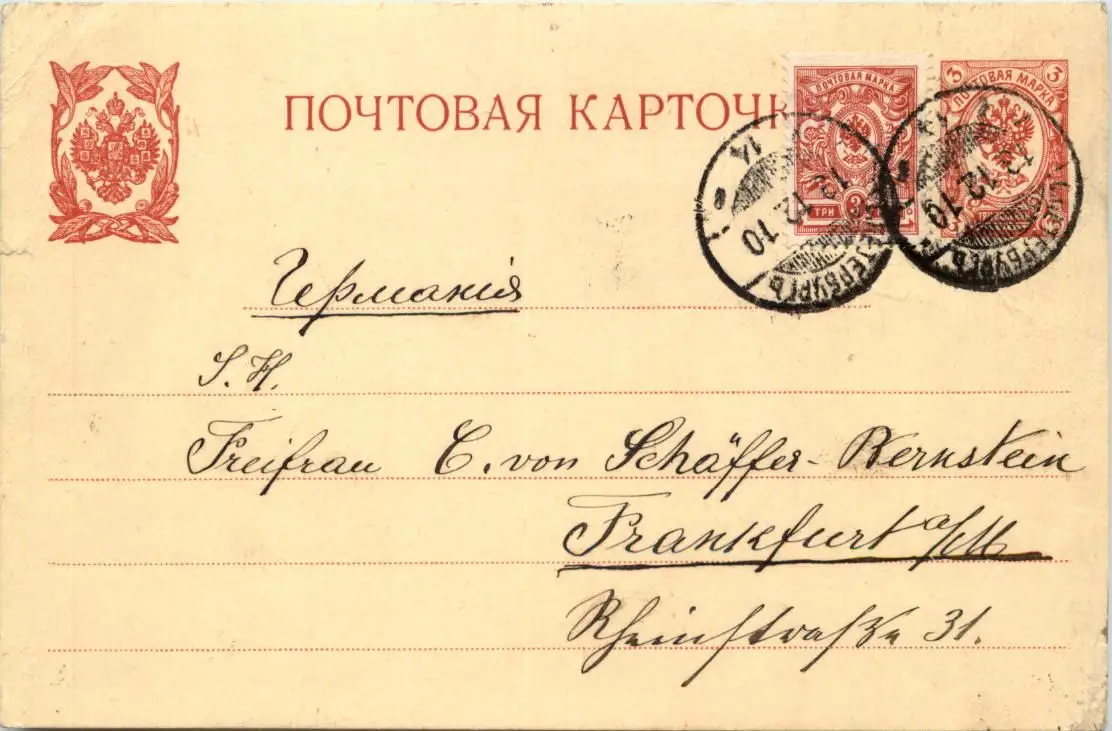 ПОЧТОВАЯ КАРТОЧК
ПОЧТОВАЯ МАРКА
ТРИ 3
3 ПОЧТОВАЯ МАРКА 3
14
12.12.10
ПЕТЕРБУРГЪ
12.12.10
ПЕТЕРБУРГЪ
Германія
S. H.
Freifrau C. von Schäffer-Bernstein
Frankfurt a/M
Rheinstraße 31.